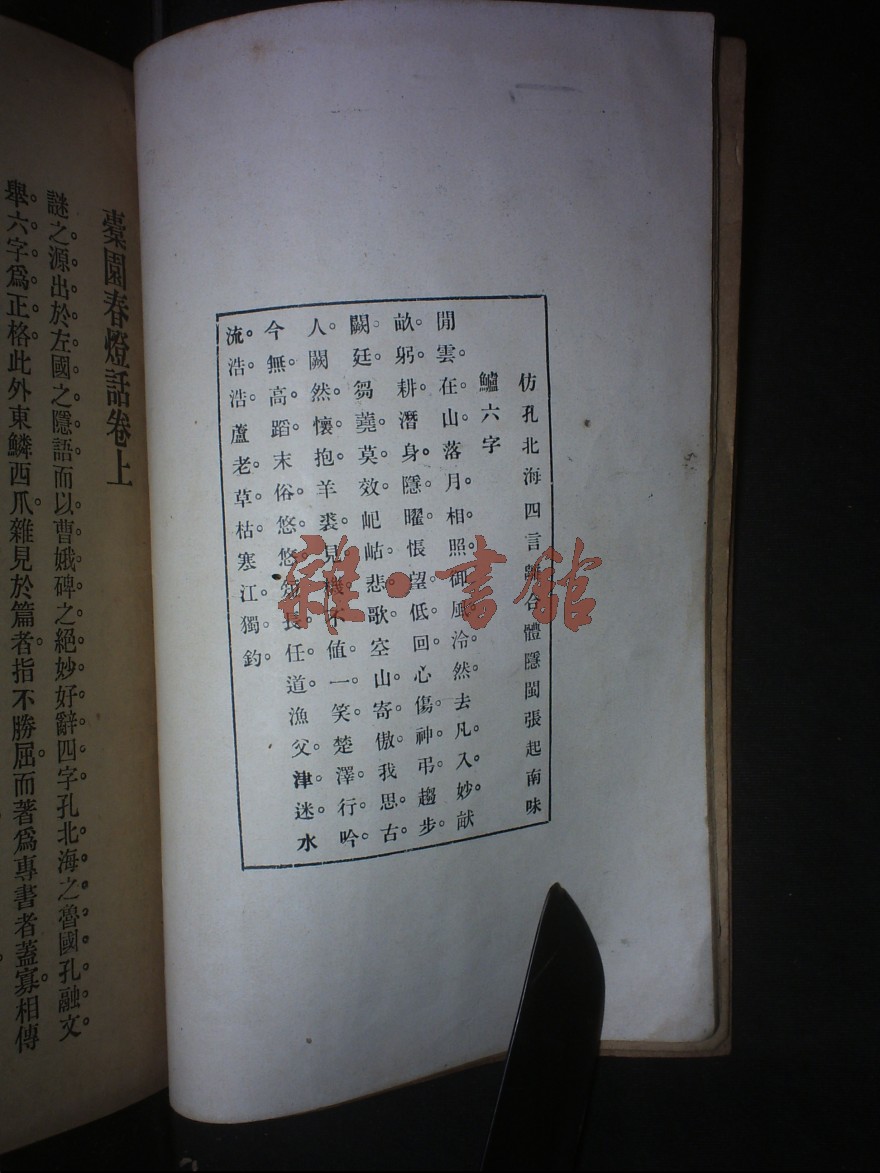 仿孔北海四言離合體隱閩張起南味
鱸六字
閒雲在山。落月相照。御風泠然。去凡入妙。畎
畝躬耕。潛身隱曜。悵望低回。心傷神弔。趨步
闕廷。芻蕘莫效。屺岵悲歌。空山寄傲。我思古
人。闕然懷抱。羊裘見機。不值一笑。楚澤行吟。
今無高蹈。末俗悠悠。長任道。漁父津迷。水
流浩浩。蘆老草枯。寒江獨釣。
橐園春燈話卷上
謎之源出於左國之隱語。而以曹娥碑之絕妙好辭四字。孔北海之魯國孔融文
舉六字爲正格。此外東鱗西爪。雜見於篇者。指不勝屈。而著爲專書者蓋寡。相傳
雜·書館